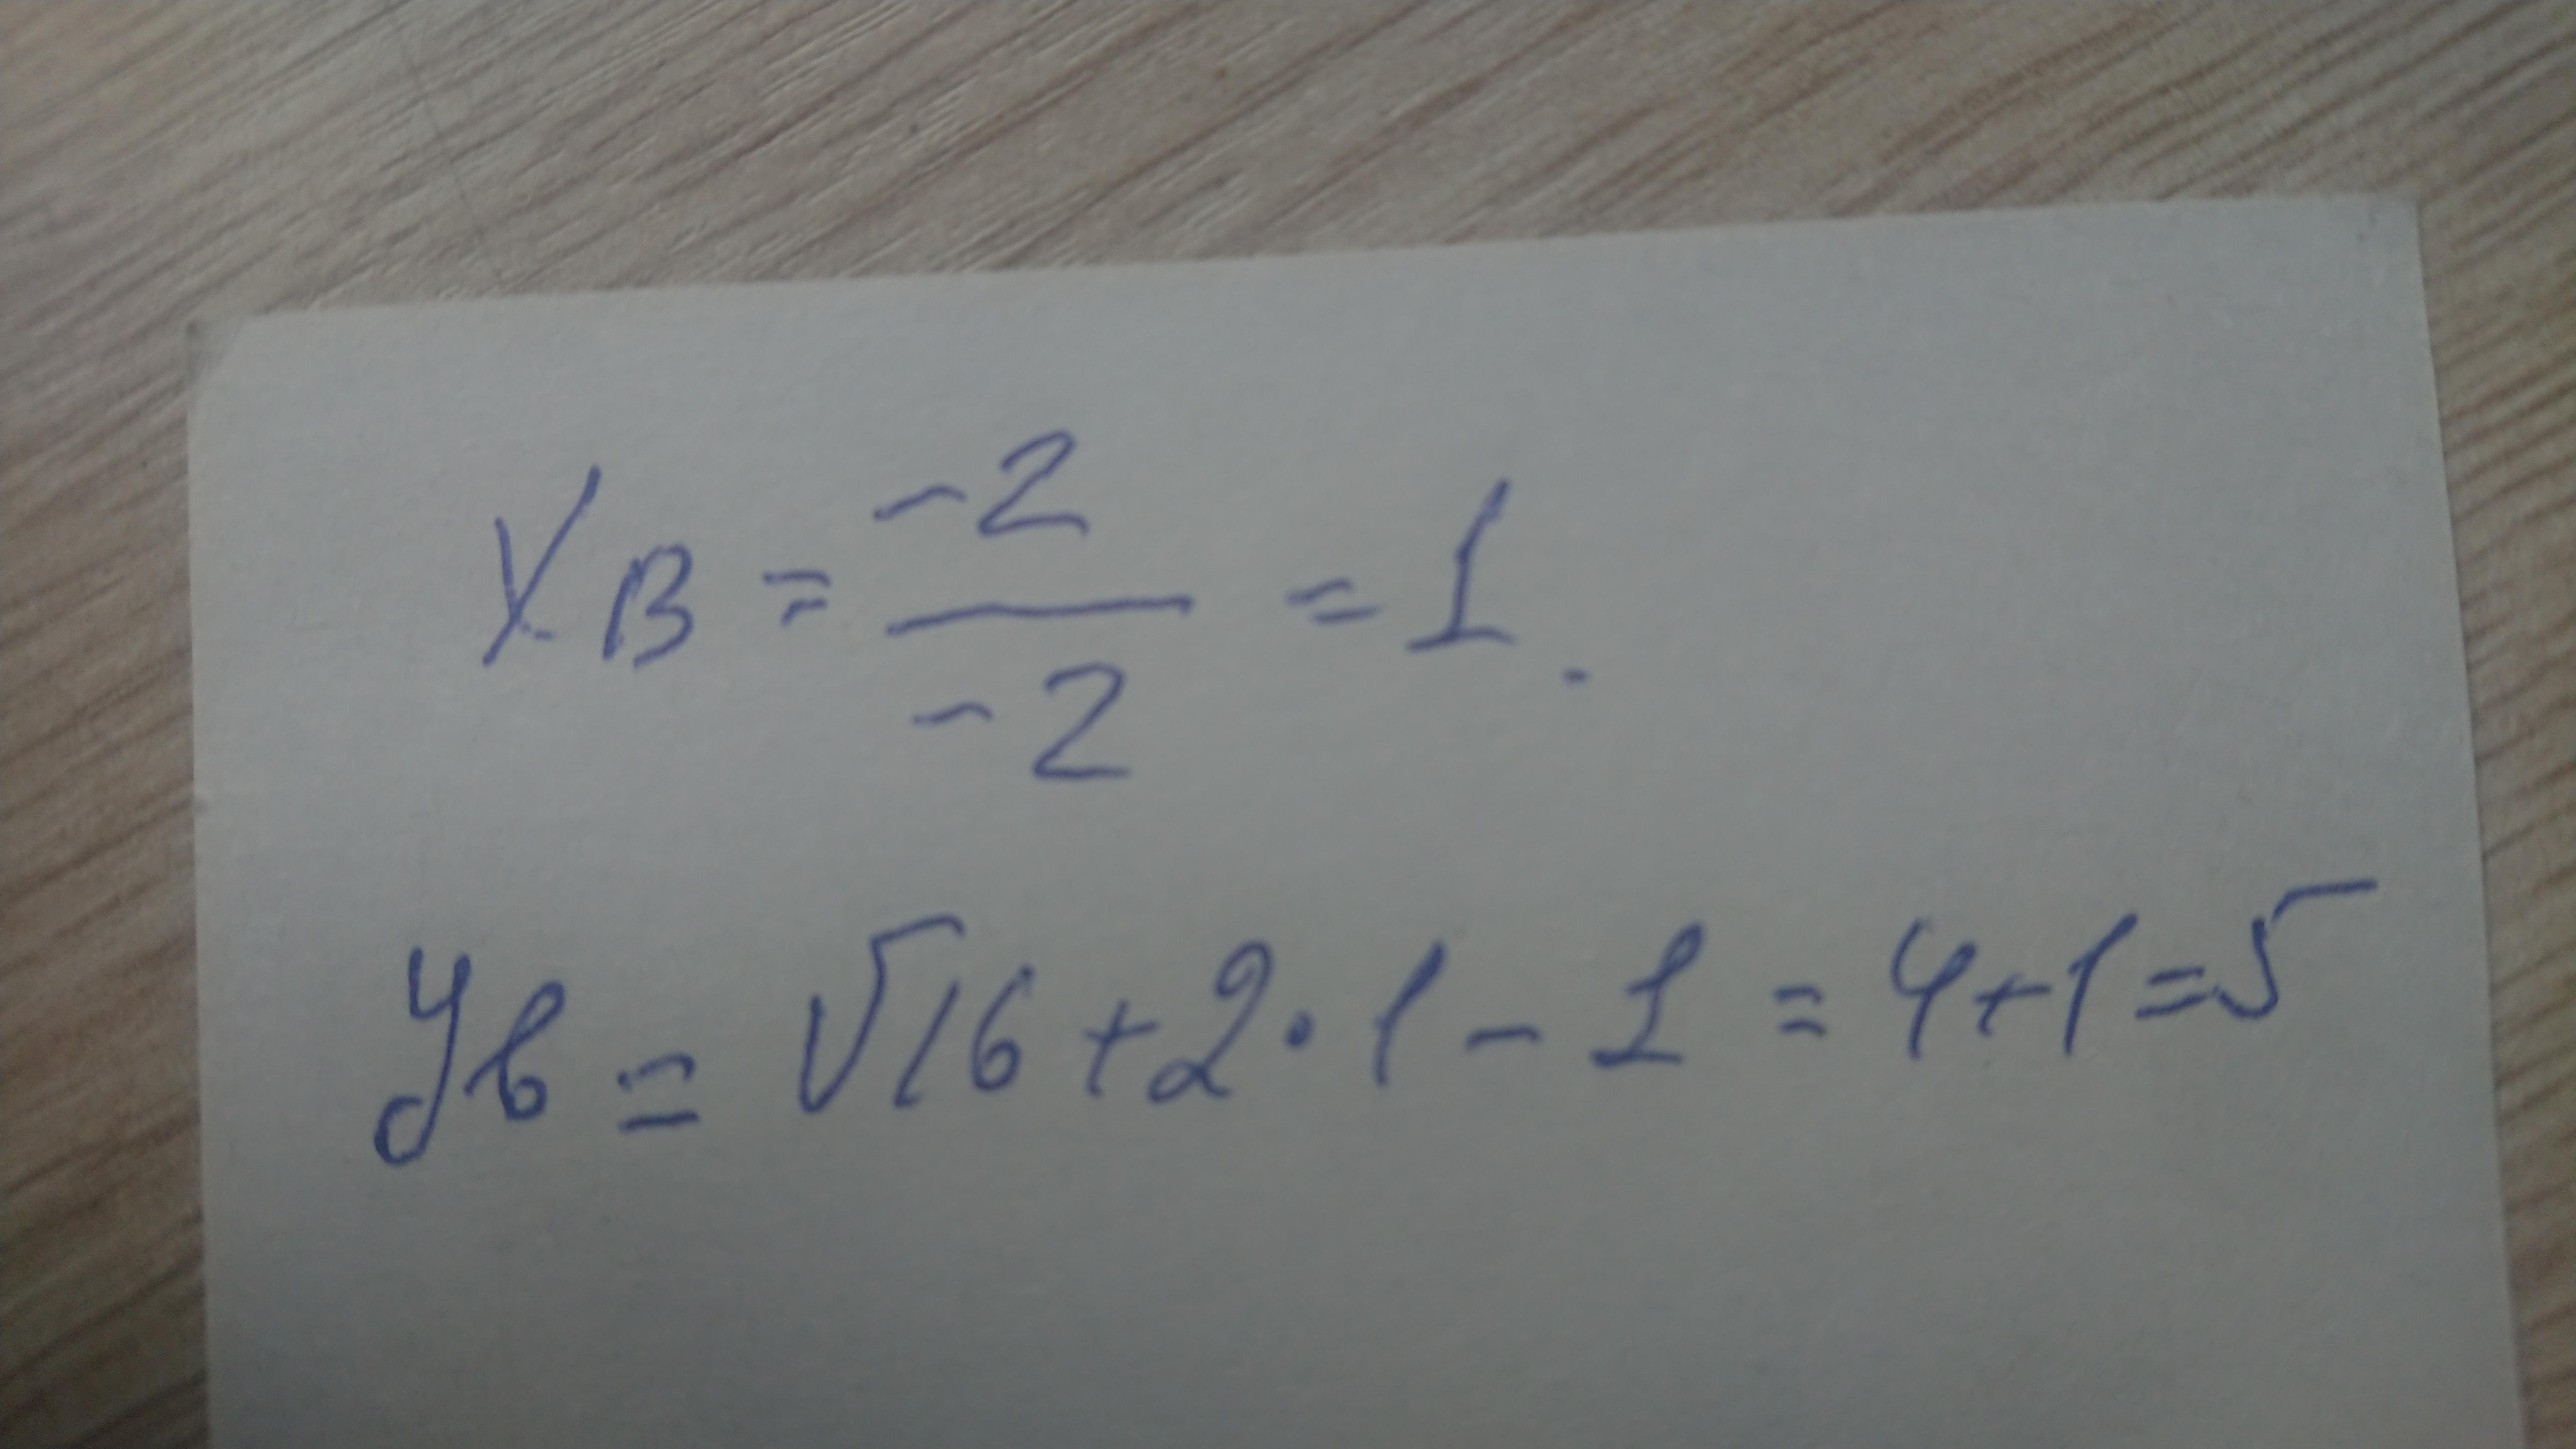 Xв = -2/-2 = 1.
Ув = √16 + 2 · 1 - 1 = 4 + 1 = 5